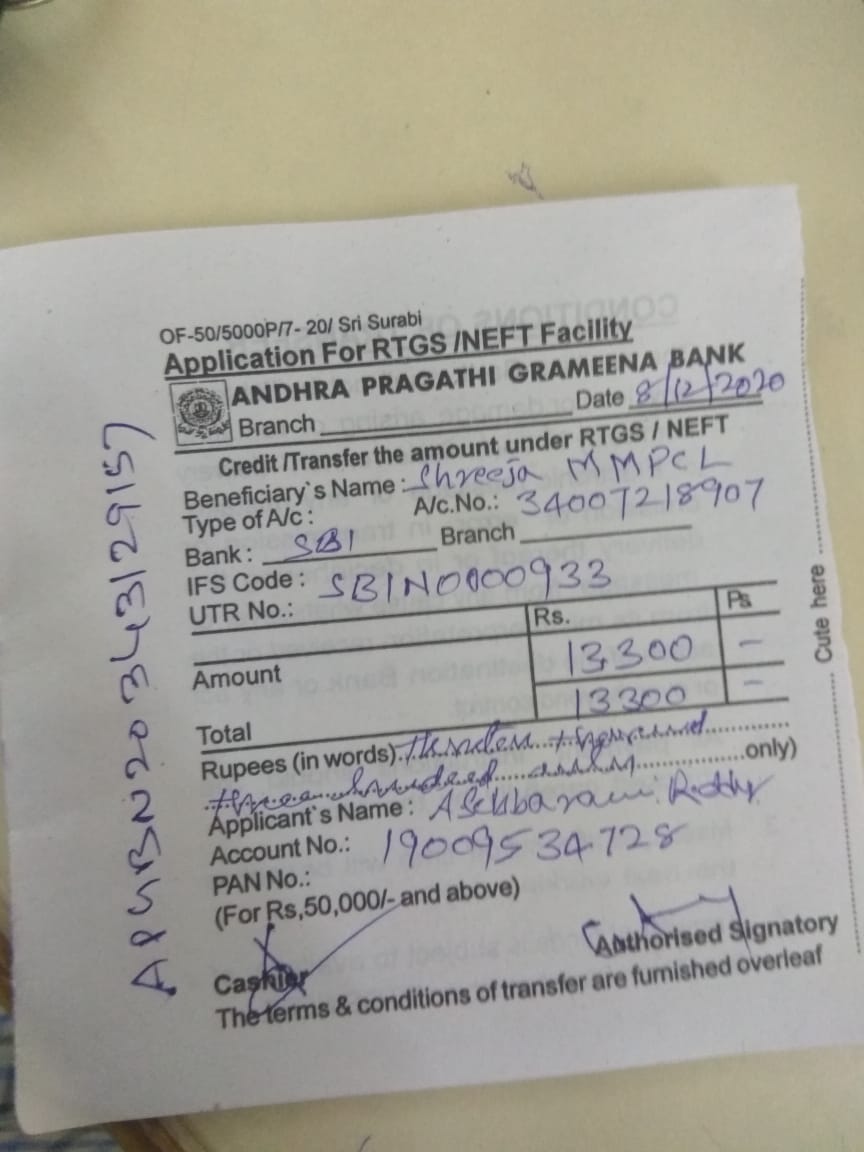 OF-50/5000P/7- 20/ Sri Surabi
Application For RTGS /NEFT Facility
ANDHRA PRAGATHI GRAMEENA BANK
Branch Date 8/12/2020
Credit /Transfer the amount under RTGS / NEFT
Beneficiary`s Name : Shreeja MMPCL
Type of A/c : A/c.No.: 34007218907
Bank : SBI Branch
IFS Code : SBIN0000933
UTR No.:
Rs. Ps
Amount 13,300 -
Total 13300 -
Rupees (in words) thousand
three hundred only only)
Applicant`s Name : Reddy
Account No.: 19009534728
PAN No.:
(For Rs,50,000/- and above)
Cashier Authorised Signatory
The terms & conditions of transfer are furnished overleaf
APGBN20343129157
Cute here